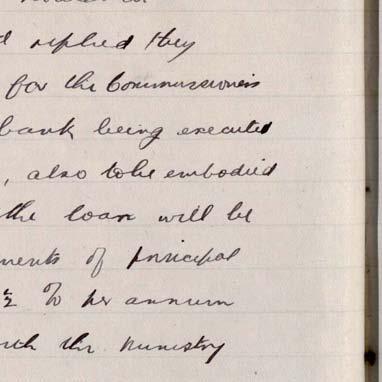 replied they
for the Commissioners
bank being executed
, also to be embodied
the loan will be
ments of principal
½ % per annum
with the Ministry